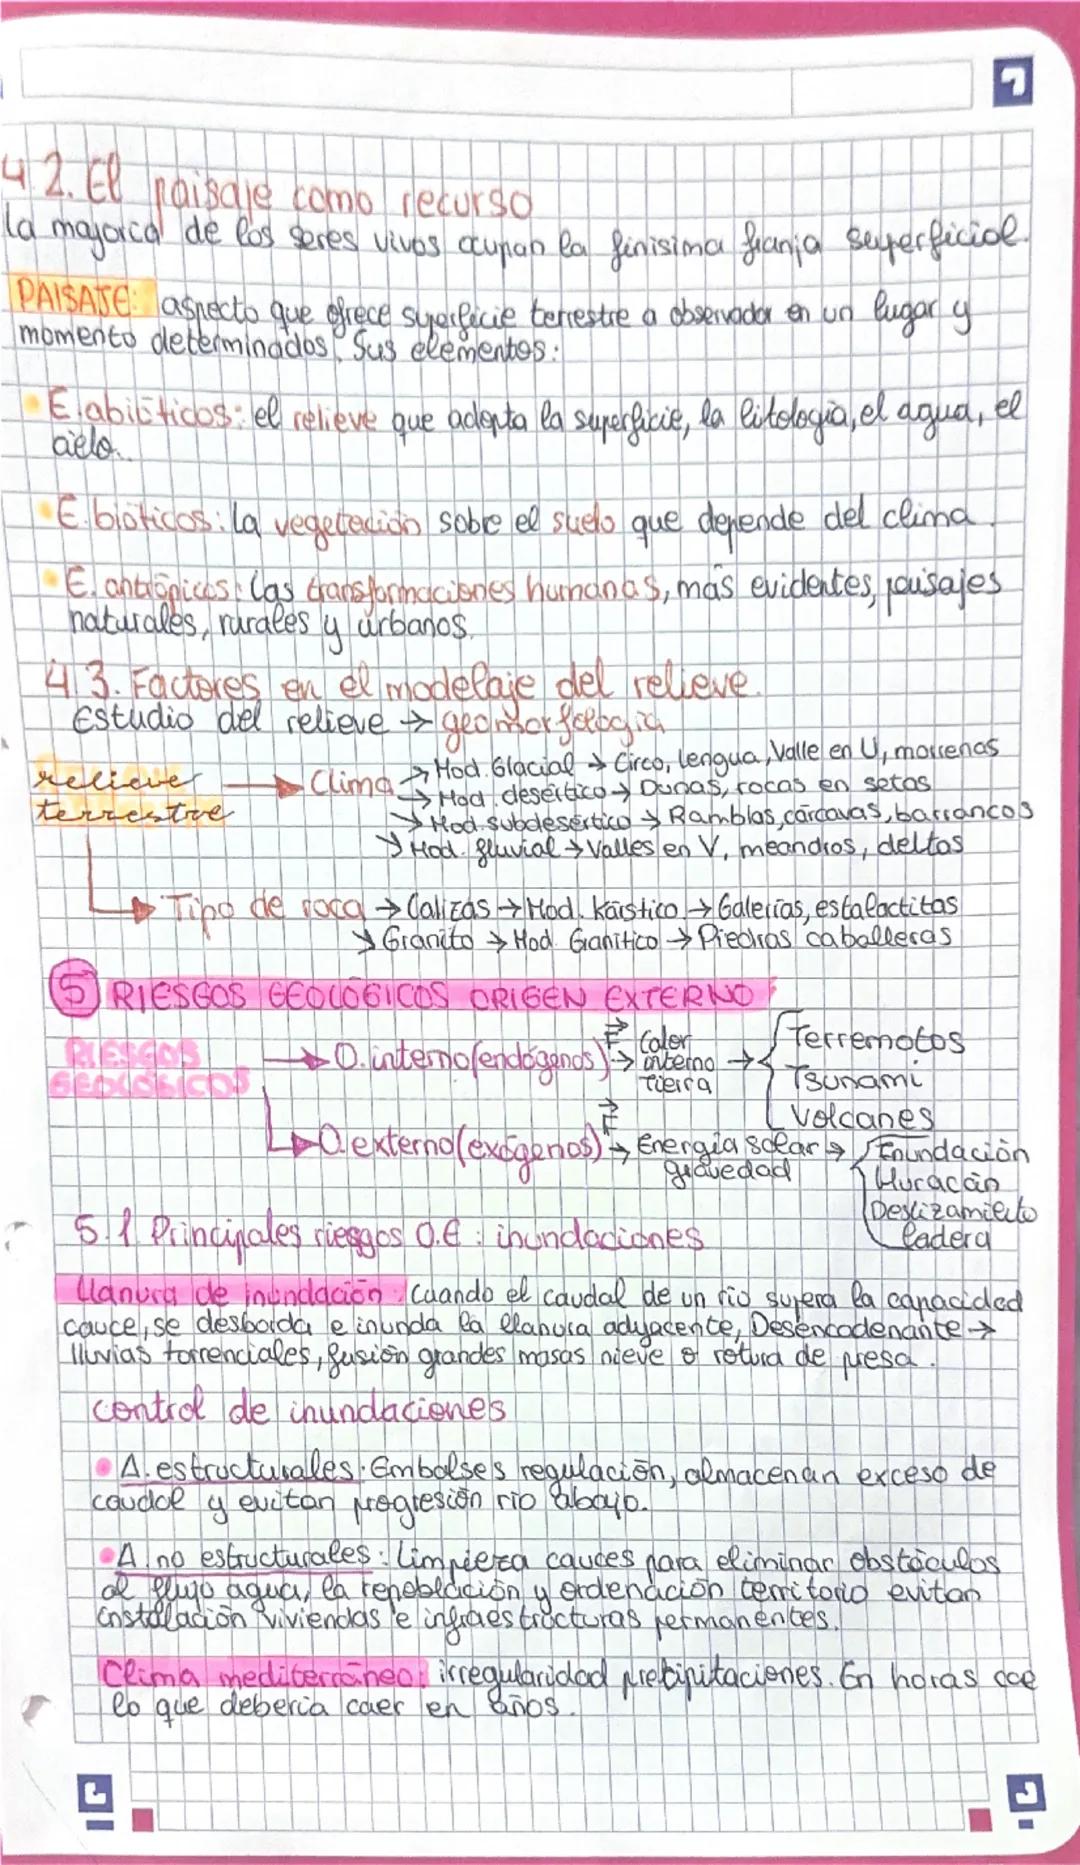 4.2. El paisaje como recurso
la mayoría de los seres vivos ocupan la finísima franja superficial.
PAISAJE: aspecto que ofrece superficie terrestre a observador en un lugar y
momento determinados. Sus elementos:
• E. abióticos: el relieve que adopta la superficie, la litología, el agua, el
cielo...
• E. bióticos: la vegetación sobre el suelo que depende del clima.
• E. antrópicos: las transformaciones humanas, más evidentes, paisajes
naturales, rurales y urbanos.
4.3. Factores en el modelaje del relieve.
Estudio del relieve → geomorfología
relieve terrestre → Clima → Mod. Glacial → Circo, lengua, Valle en U, morrenas
→ Mod. desértico → Dunas, rocas en setas
→ Mod. subdesértico → Ramblas, cárcavas, barrancos
→ Mod. fluvial → Valles en V, meandros, deltas
→ Tipo de roca → Calizas → Mod. Kárstico → Galerías, estalactitas
→ Granito → Mod. Granítico → Piedras caballeras
5 RIESGOS GEOLÓGICOS ORIGEN EXTERNO
RIESGOS GEOLÓGICOS → O. interno (endógenos) F → Calor interno tierra → Terremotos
Tsunami
Volcanes
→ O. externo (exógenos) F → Energía solar gravedad → Inundación
Huracán
Deslizamiento
ladera
5.1. Principales riesgos O.E: inundaciones
Llanura de inundación: Cuando el caudal de un río supera la capacidad
cauce, se desborda e inunda la llanura adyacente, Desencadenante →
lluvias torrenciales, fusión grandes masas nieve o rotura de presa.
Control de inundaciones
• A. estructurales: Embalses regulación, almacenan exceso de
caudal y evitan progresión río abajo.
• A. no estructurales: Limpieza cauces para eliminar obstáculos
al flujo agua, la repoblación y ordenación territorio evitan
instalación viviendas e infraestructuras permanentes.
Clima mediterráneo: irregularidad precipitaciones. En horas cae
lo que debería caer en años.